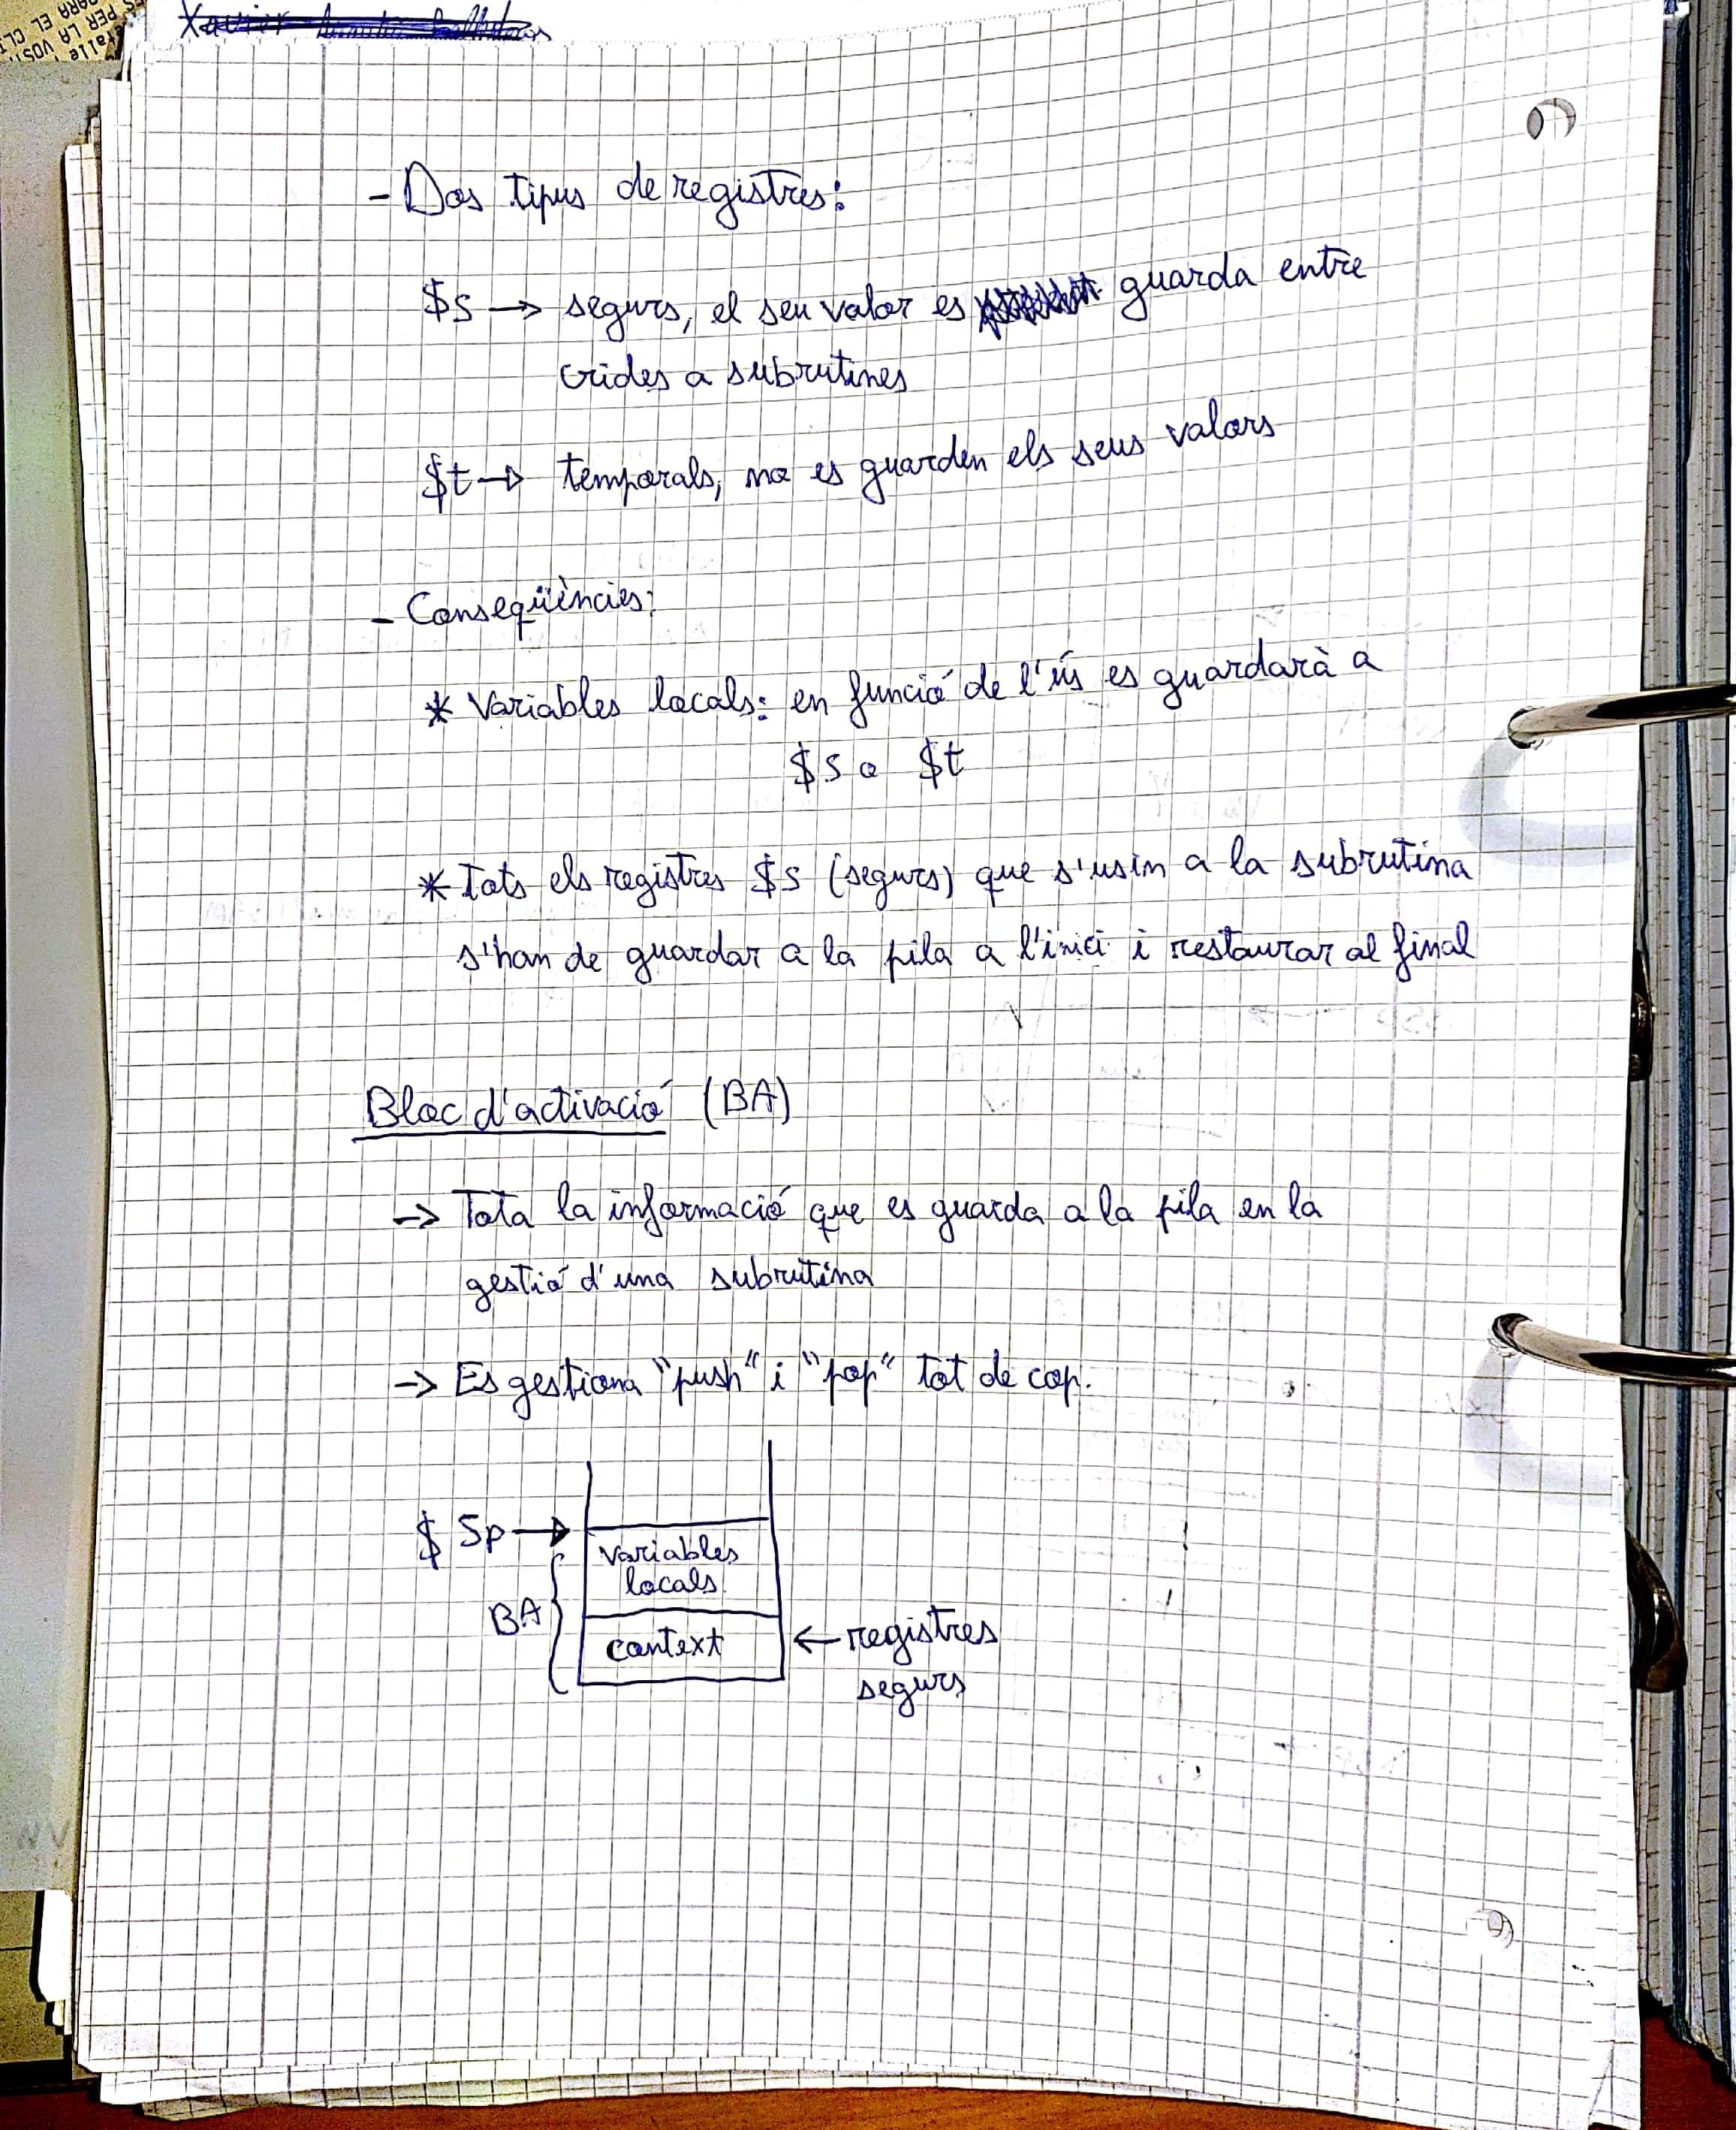 Xavier
- Dos tipus de registres:
$s → segurs, el seu valor es guarda entre
crides a subrutines
$t → temporals, no es guarden els seus valors
- Conseqüències:
* Variables locals: en funció de l'ús es guardarà a
$s o $t
* Tots els registres $s (segurs) que s'usin a la subrutina
s'han de guardar a la pila a l'inici i restaurar al final
Bloc d'activació (BA)
→ Tota la informació que es guarda a la pila en la
gestió d'una subrutina
→ Es gestiona "push" i "pop" tot de cop.
$ Sp →
variables
locals
BA
context ← registres
segurs